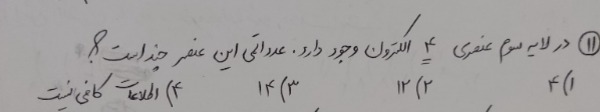 ۱۱) در لایه سوم عنصری ۴ الکترون وجود دارد. عدد اتمی این عنصر چند است؟
۱) ۴ ۲) ۱۲ ۳) ۱۴ ۴) اطلاعات کافی نیست